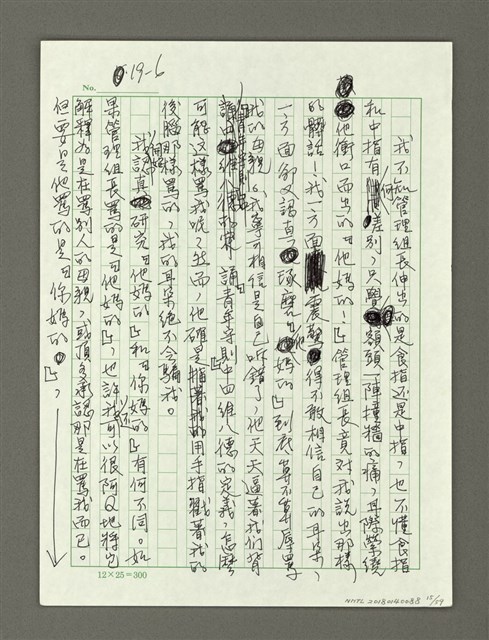 19-6
No.
我不知管理組長伸出的是食指還是中指，也不懂食指
和中指有何差別，只覺額頭一陣撞牆的痛，耳際縈繞
他衝口而出的『他媽的！』管理組長竟對我說出那樣
的髒話！我一方面震驚得不敢相信自己的耳朵，
一方面卻又認真琢磨『他媽的』到底算不算辱罵
我的母親。我寧可相信是自己聽錯了，他天天逼著我們背
誦青年守則中四維八德的定義，怎麼
可能這樣罵我呢？然而，他確是指著我的用手指戳著我的
後腦那樣罵的，我的耳朵絕不會騙我。
我認真研究『他媽的』和『你媽的』有何不同。如
果管理組長罵的是『他媽的』，也許我還可以很阿Q地將它
解釋為是在罵別人的母親，或頂多承認那是在罵我而已。
但要是他罵的是『你媽的』，
12×25=300
NMTL 20180140088 15/59